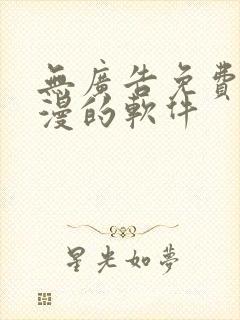 無廣告免費
漫的軟件
星光如夢